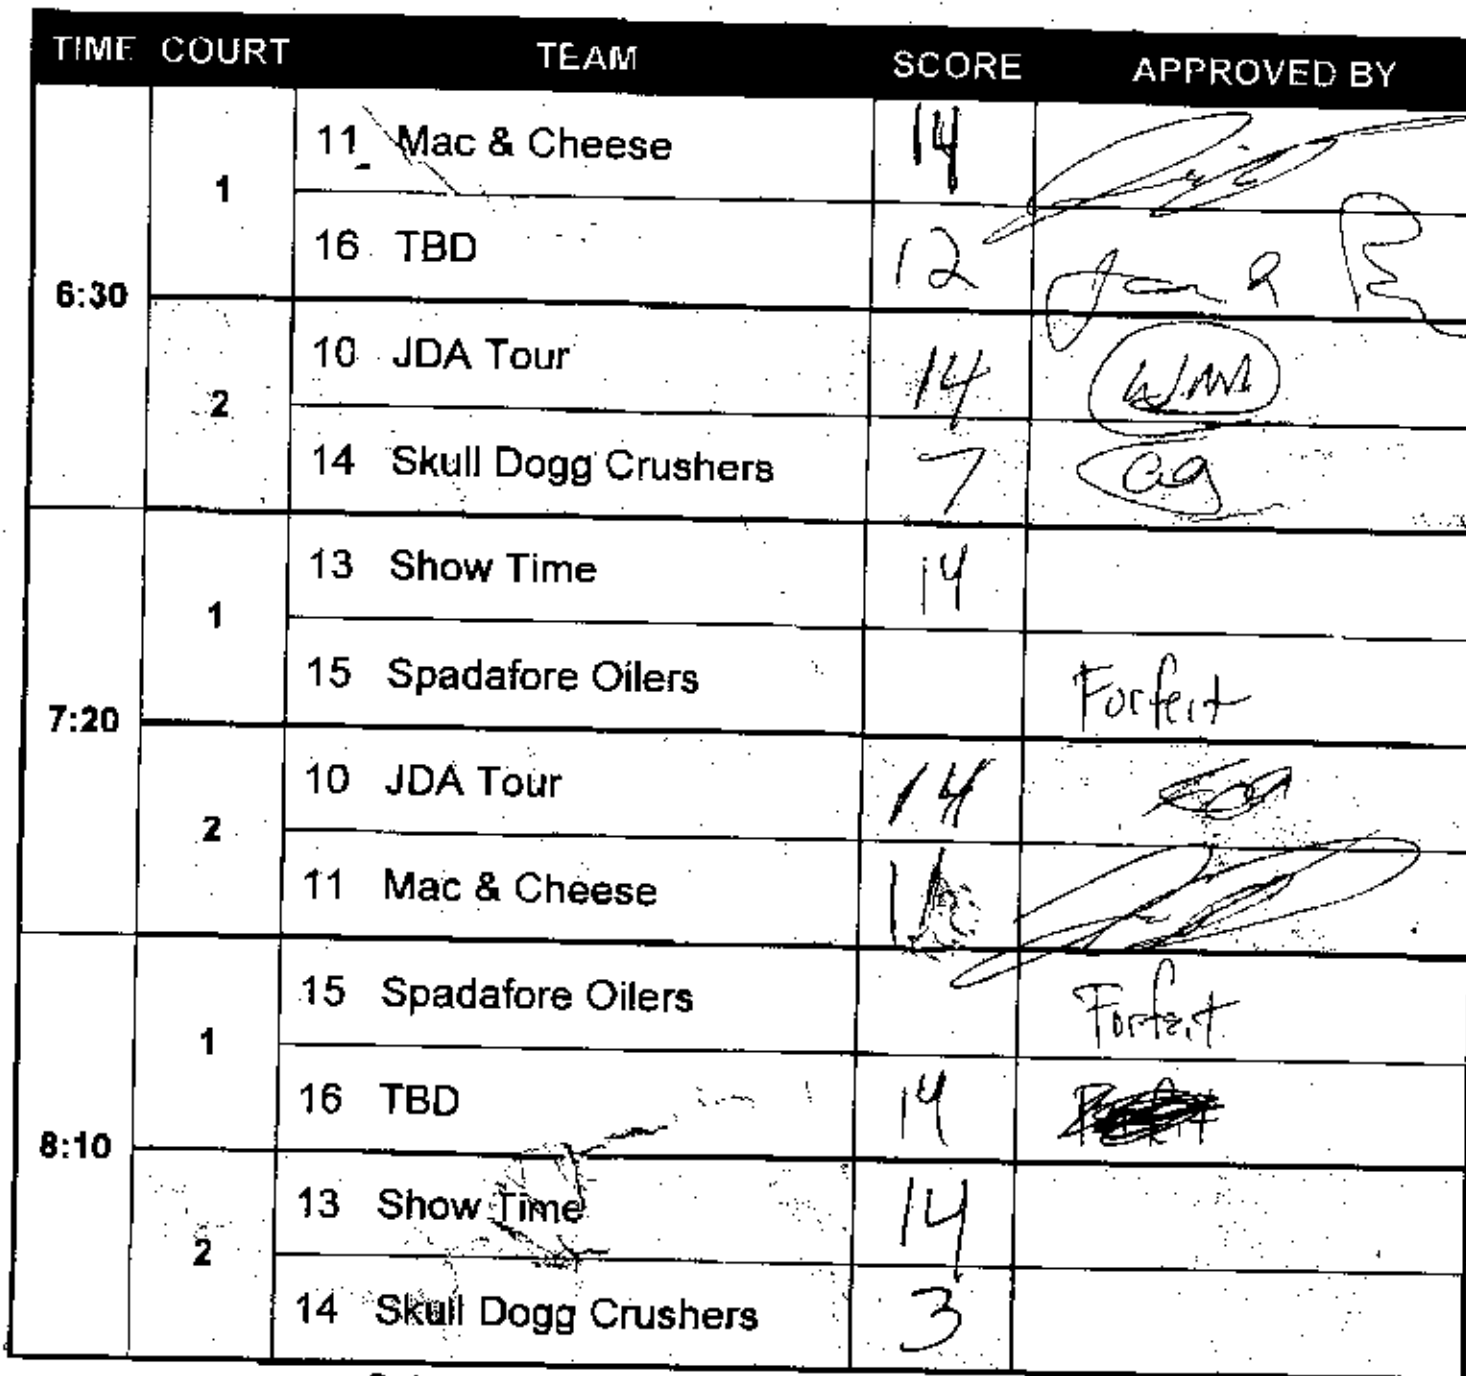 TIME COURT TEAM SCORE APPROVED BY
6:30 1 11 Mac & Cheese 14
16 TBD 12
2 10 JDA Tour 14
14 Skull Dogg Crushers 7
7:20 1 13 Show Time 14
15 Spadafore Oilers Forfeit
2 10 JDA Tour 14
11 Mac & Cheese
8:10 1 15 Spadafore Oilers Forfeit
16 TBD 14
2 13 Show Time 14
14 Skull Dogg Crushers 3